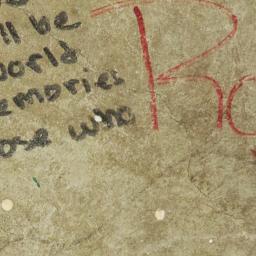 ll be
world
emories
ose who
R